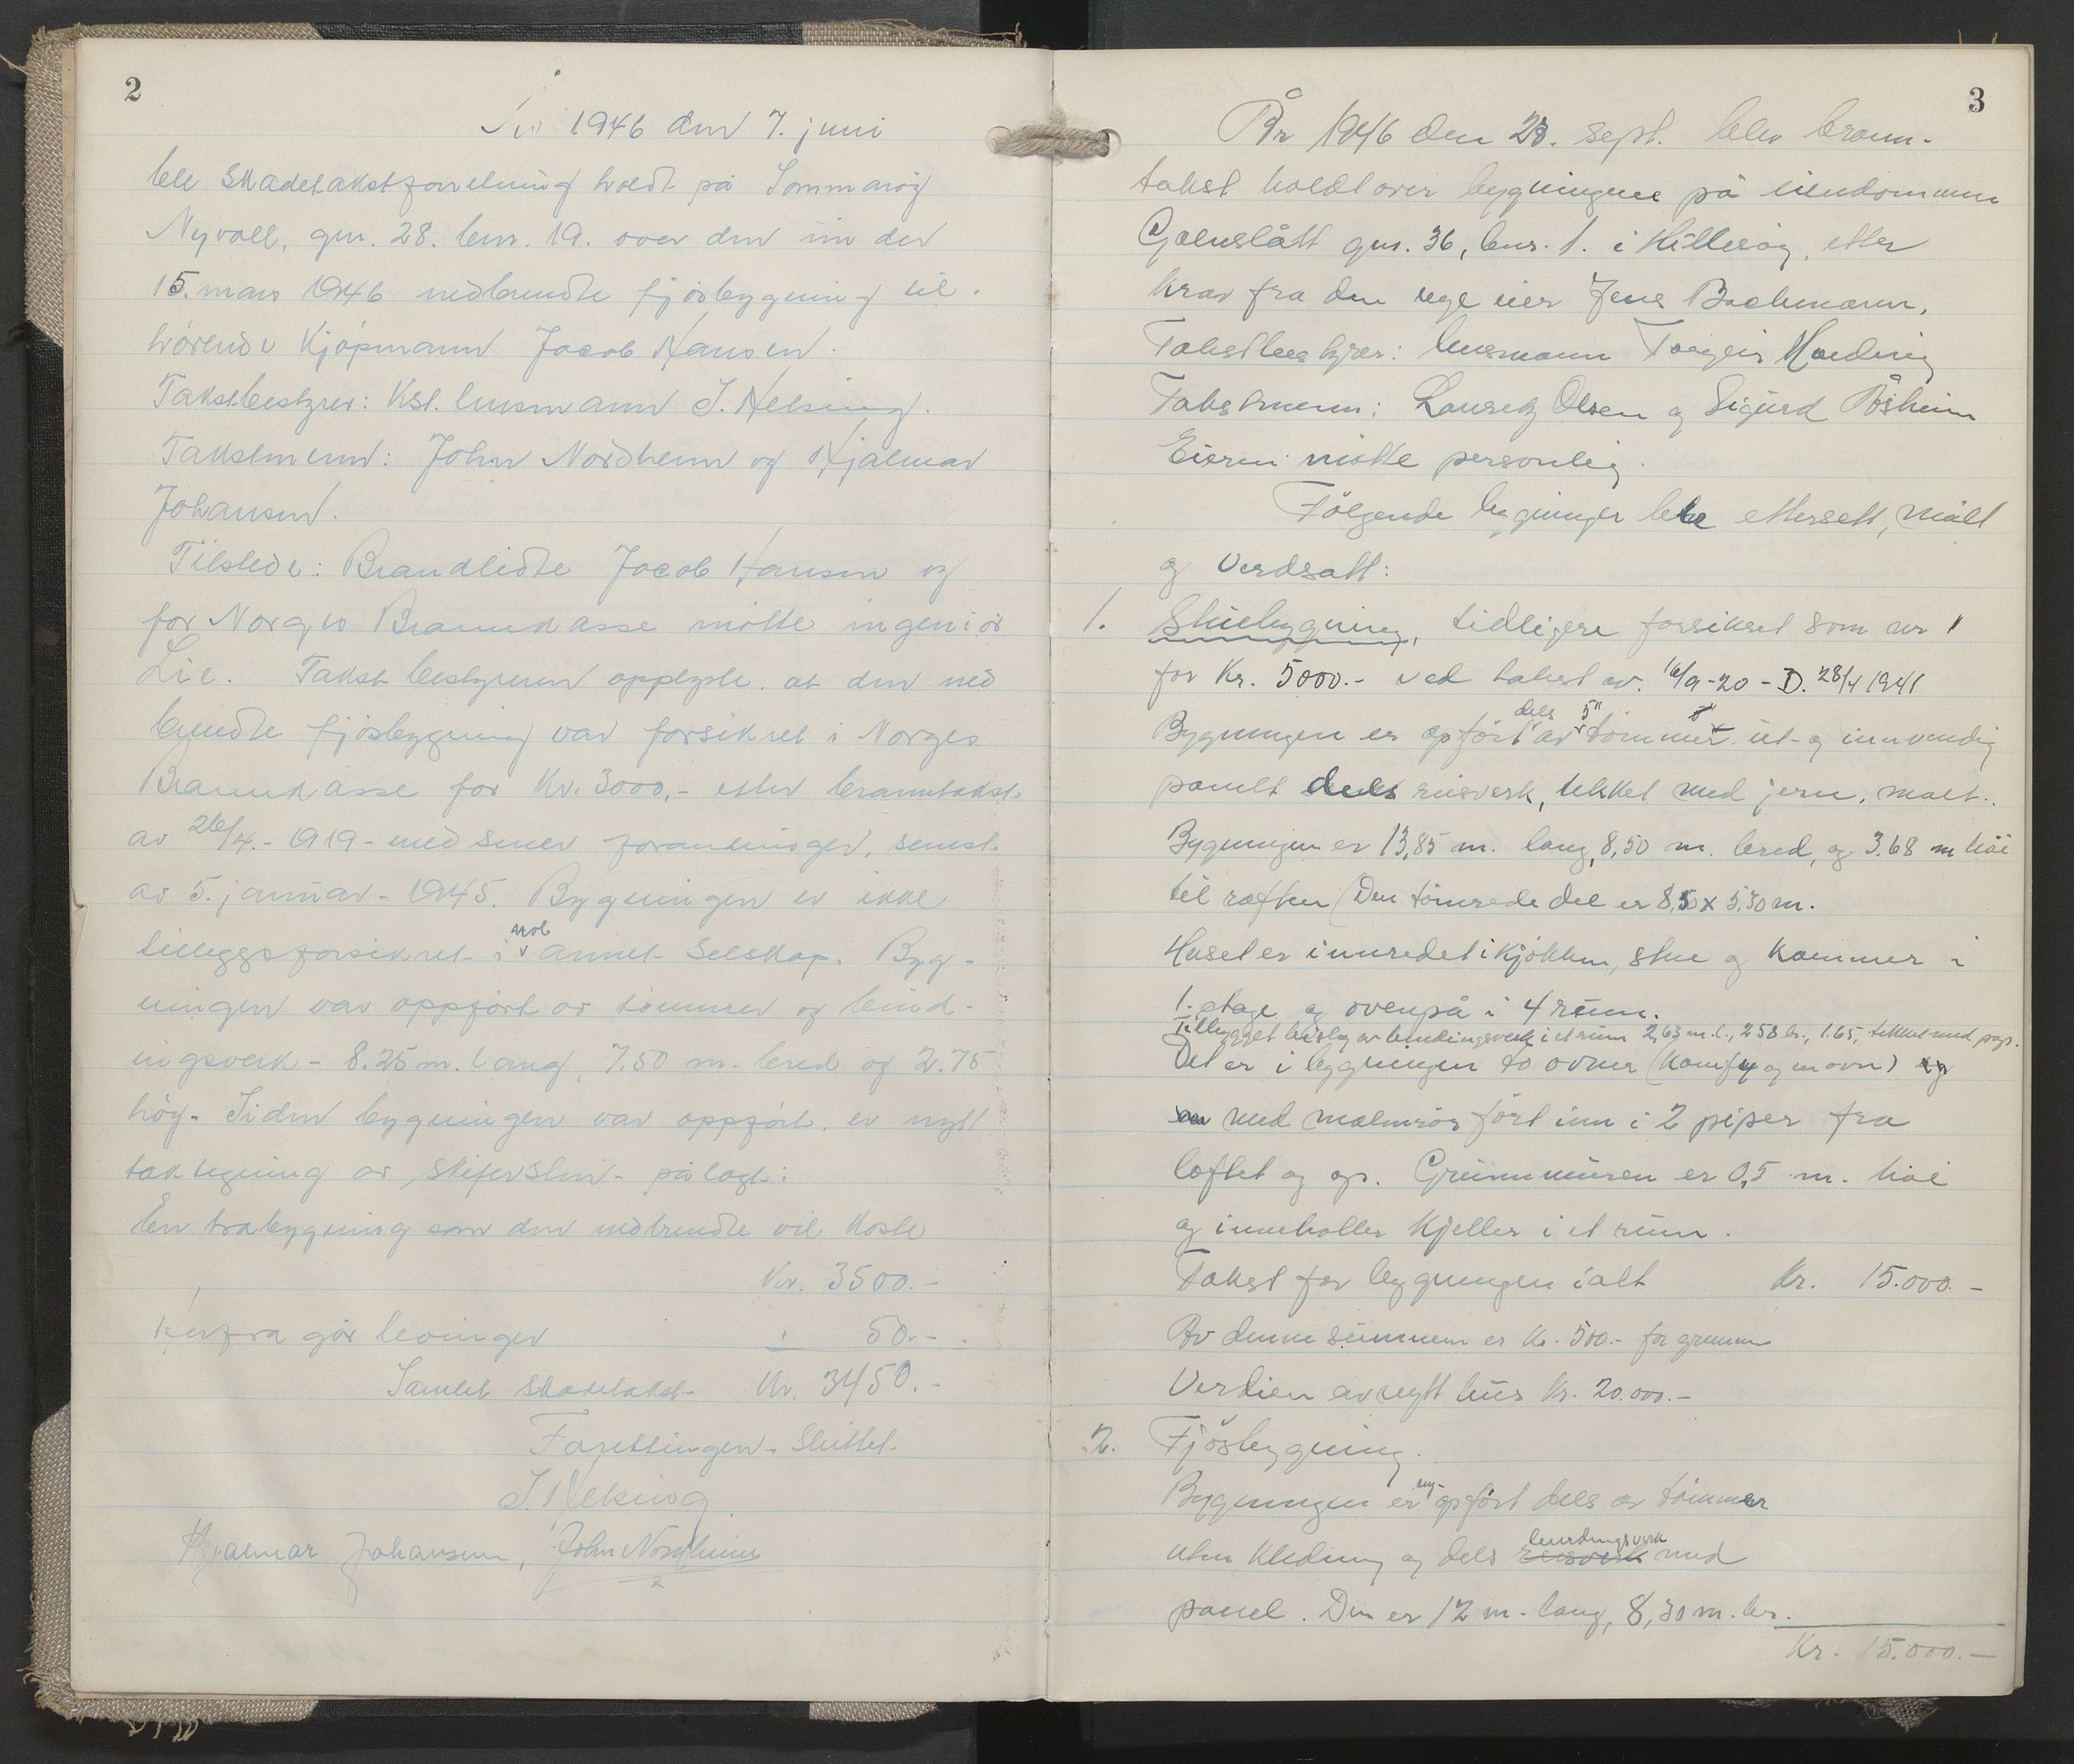 2
År 1946 den 7. juni
ble skadetakstforretning holdt på Sommarøy
Nyvoll, gnr. 28. bnr. 19. over den  den
15. mars 1946 nedbrendte fjøsbygning til-
hørende Kjøpmann Jacob Hansen.
Takstbestyrer: Kst. lensmann J. Helsing.
Takstmenn: John Nordheim og Hjalmar
Johansen.
Tilstede: Brandlidte Jacob Hansen og
for Norges Brannkasse møtte ingeniør
Lie. Takstbestyreren opplyste at den ned
brendte fjøsbygning var forsikret i Norges
Brannkasse for Kr. 3000,- etter branntakst
av 26/4.- 1919 - med senere forandringer, senest
av 5. januar - 1945. Bygningen er ikke
tilleggsforsikret i noe annet Selskap. Byg-
ningen var oppført av tømmer og bind-
ingsverk - 8.25 m. lang, 7.50 m. bred og 2.75
høy. Siden bygningen var oppført, er nytt
taktegning av skiferstein pålagt.
En trebygning som den nedbrendte vil koste
Kr. 3500.-
Herfra går levninger " 50.-
Samlet skadetakst Kr. 3450.-
Forretningen sluttet.
J. Helsing
Hjalmar Johansen, John Nordheim
3
År 1946 den 28. sept. blev brann-
takst holdt over bygningene på eiendommen
Gjøenslått gnr. 36, bnr. 1. i Hillesøy, etter
krav fra den nye eier Jens Bachmann.
Takstbestyrer: lensmann Torgeir Hæding
Takstmenn: Lauritz Olsen og Sigurd Åsheim
Eieren møtte personlig.
Følgende bygninger ble ettersett, målt
og verdsatt:
1. Stuebygning, tidligere forsikret som nr 1
for Kr. 5000.- ved takst av 16/9-20 - D. 28/4 1941
dels 5"
Bygningen er opført av tømmer ut- og innvendig
panelt dels reisverk, tekket med jern, malt.
Bygningen er 13,85 m. lang, 8,50 m. bred, og 3.68 m høi
til raften (Den tømrede del er 8,50 x 5,30 m.
Huset er innredet i kjøkken, stue og kammer i
1. etage og ovenpå i 4 rum.
Tilbygget bislag av bindingsverk i et rum 2,63 m. l., 2.58 br., 1.65, tekket med papp.
Det er i bygningen to ovner (komfyr og en ovn) og
en med malmrør ført inn i 2 piper fra
loftet og op. Grunnmuren er 0,5 m. høi
og inneholler kjeller i et rum.
Takst for bygningen ialt Kr. 15.000.-
Av denne summen er Kr. 500.- for grunnen
Verdien av nytt hus Kr. 20.000.-
2. Fjøsbygning.
Bygningen er ny-opført dels av tømmer
bindingsverk
uten kledning og dels reisverk med
panel. Den er 12 m. lang, 8,30 m. br.
Kr. 15.000.-